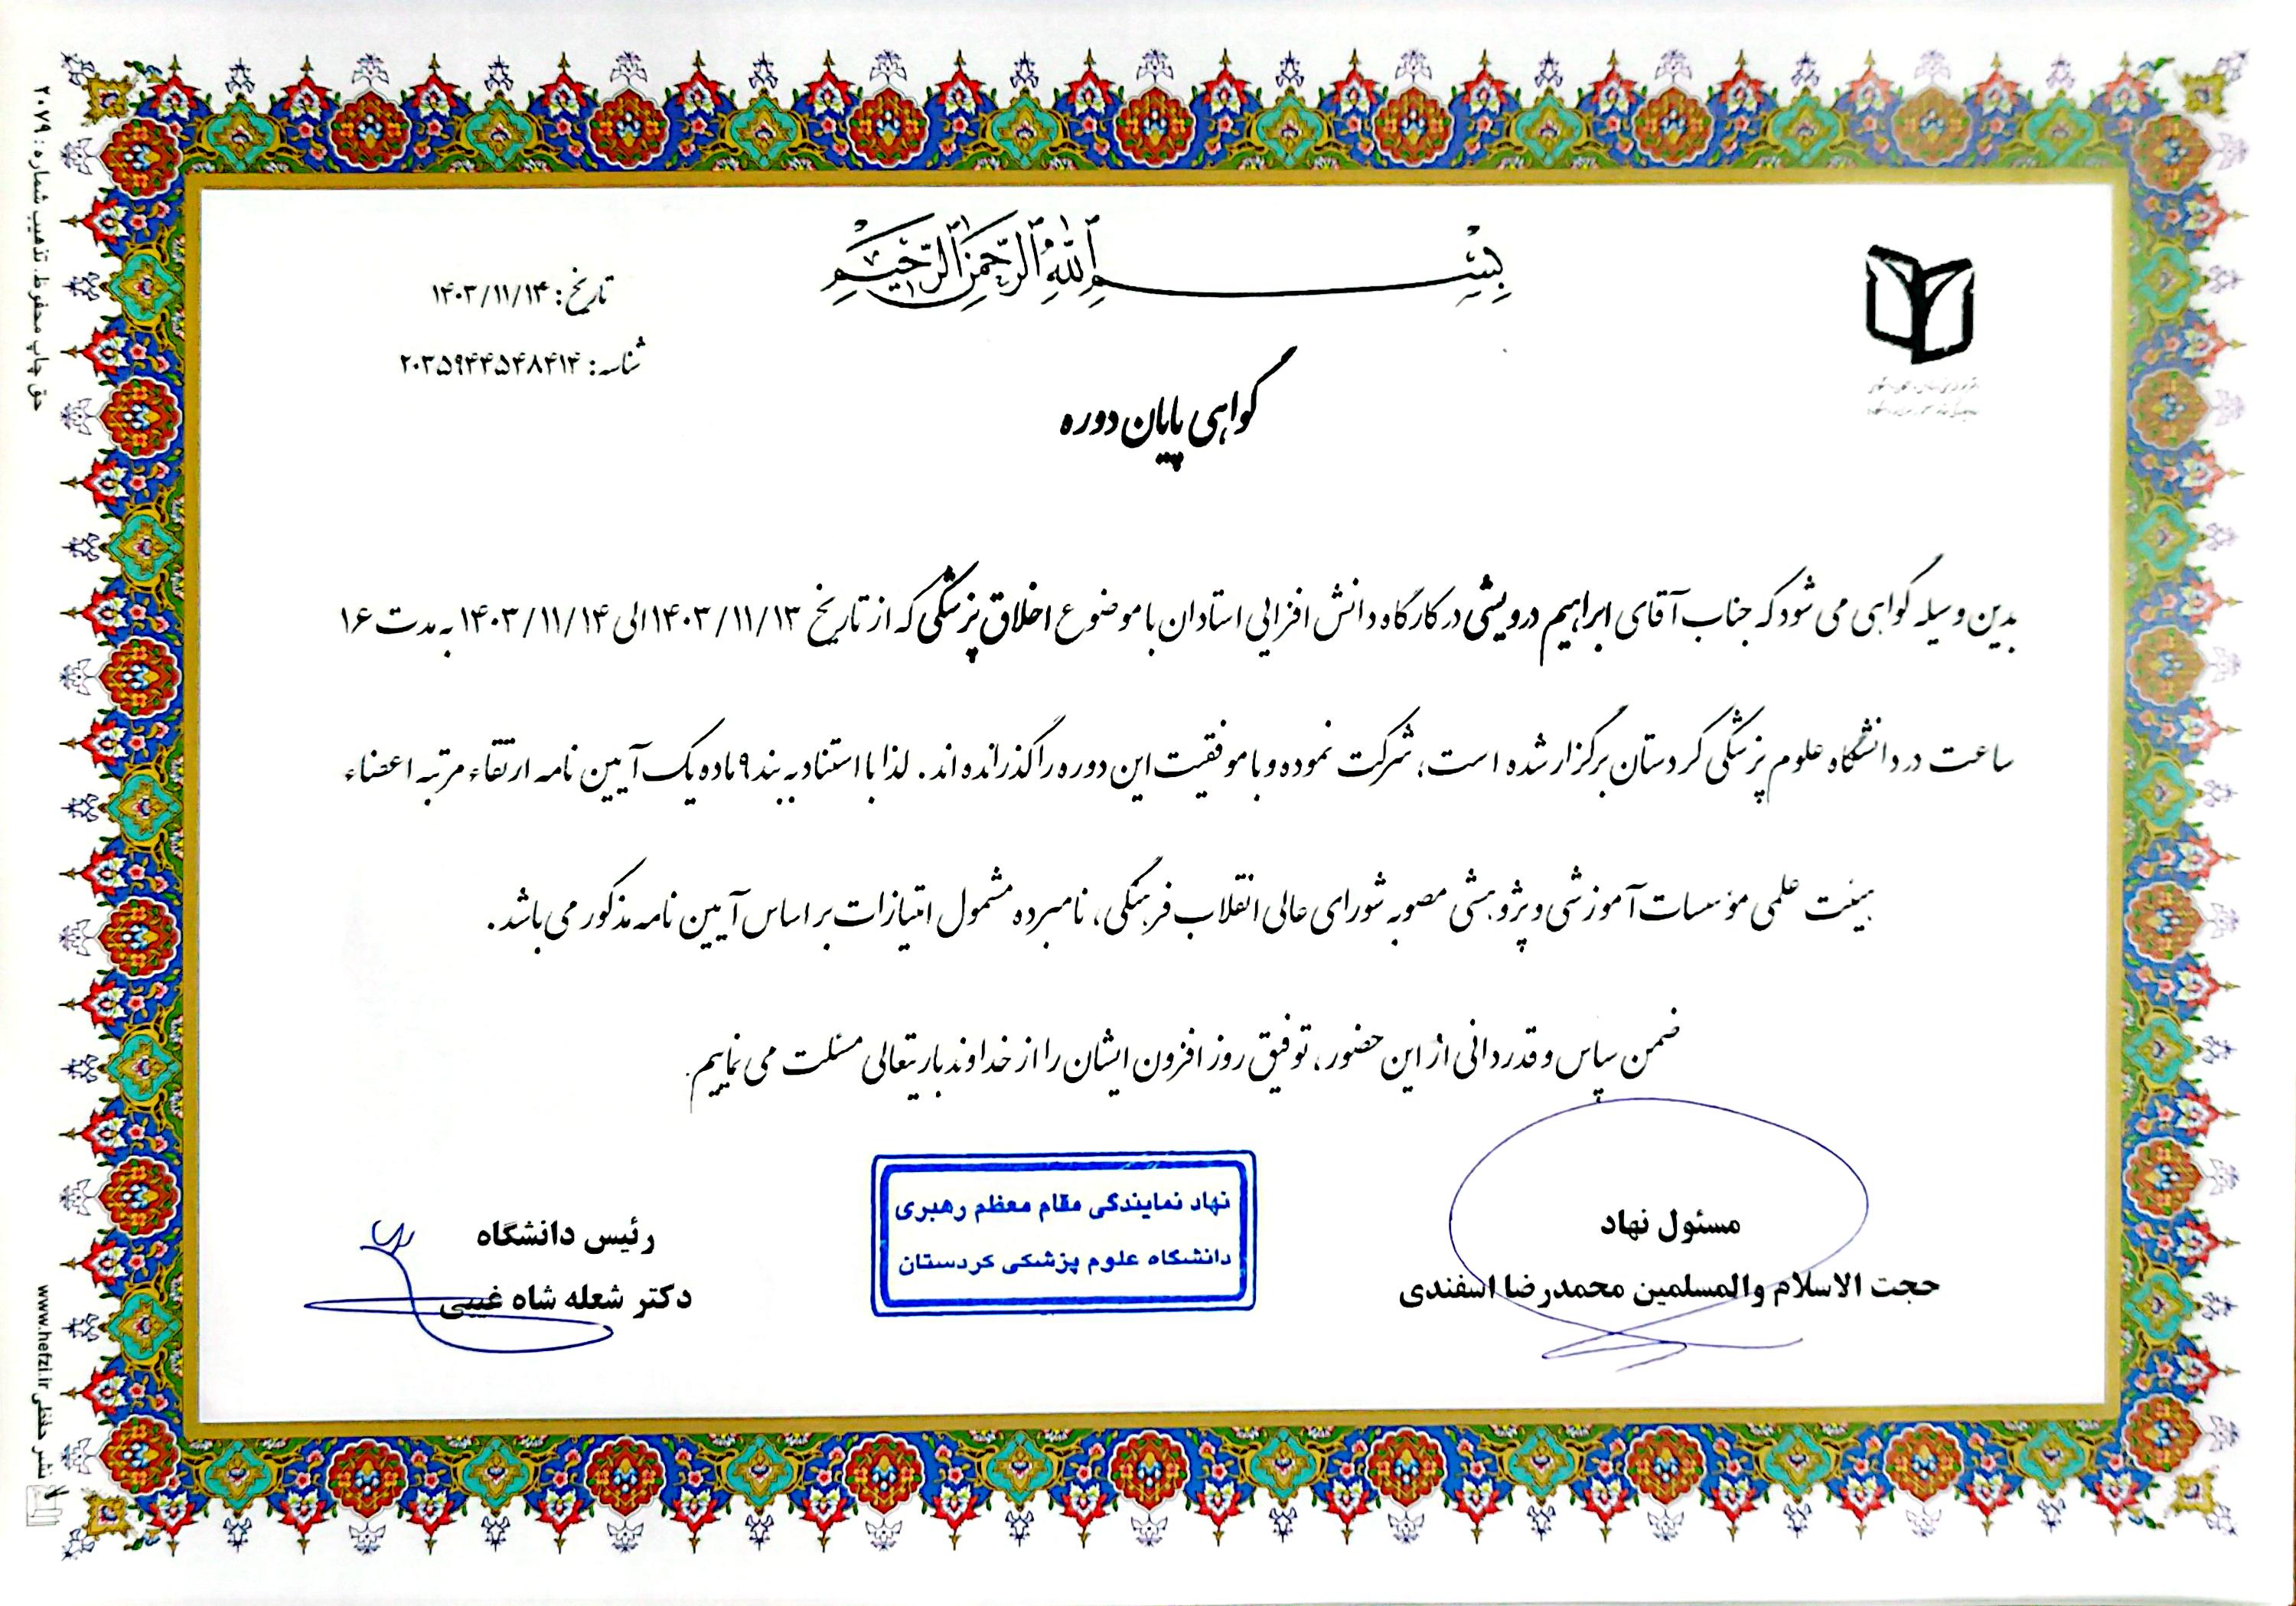 بِسْمِ اللهِ الرَّحْمنِ الرَّحیمِ
تاریخ: ۱۴۰۳/۱۱/۱۴
شناسه: ۲۰۳۵۹۴۴۵۴۸۴۱۴
گواهی پایان دوره
بدین وسیله گواهی می شود که جناب آقای ابراهیم درویشی در کارگاه دانش افزایی استادان با موضوع اخلاق پزشکی که از تاریخ ۱۴۰۳/۱۱/۱۳ الی ۱۴۰۳/۱۱/۱۴ به مدت ۱۶
ساعت در دانشگاه علوم پزشکی کردستان برگزار شده است، شرکت نموده و با موفقیت این دوره را گذرانده اند. لذا با استناد به بند ۹ ماده یک آیین نامه ارتقاء مرتبه اعضاء
هیئت علمی مؤسسات آموزشی و پژوهشی مصوبه شورای عالی انقلاب فرهنگی، نامبرده مشمول امتیازات بر اساس آیین نامه مذکور می باشد.
ضمن سپاس و قدردانی از این حضور، توفیق روز افزون ایشان را از خداوند باریتعالی مسئلت می نماییم.
مسئول نهاد
حجت الاسلام والمسلمین محمدرضا اسفندی
نهاد نمایندگی مقام معظم رهبری
دانشگاه علوم پزشکی کردستان
رئیس دانشگاه
دکتر شعله شاه غیبی
حق چاپ محفوظ. تذهیب شماره: ۲۰۷۹
نشر حفظی www.hefzi.ir